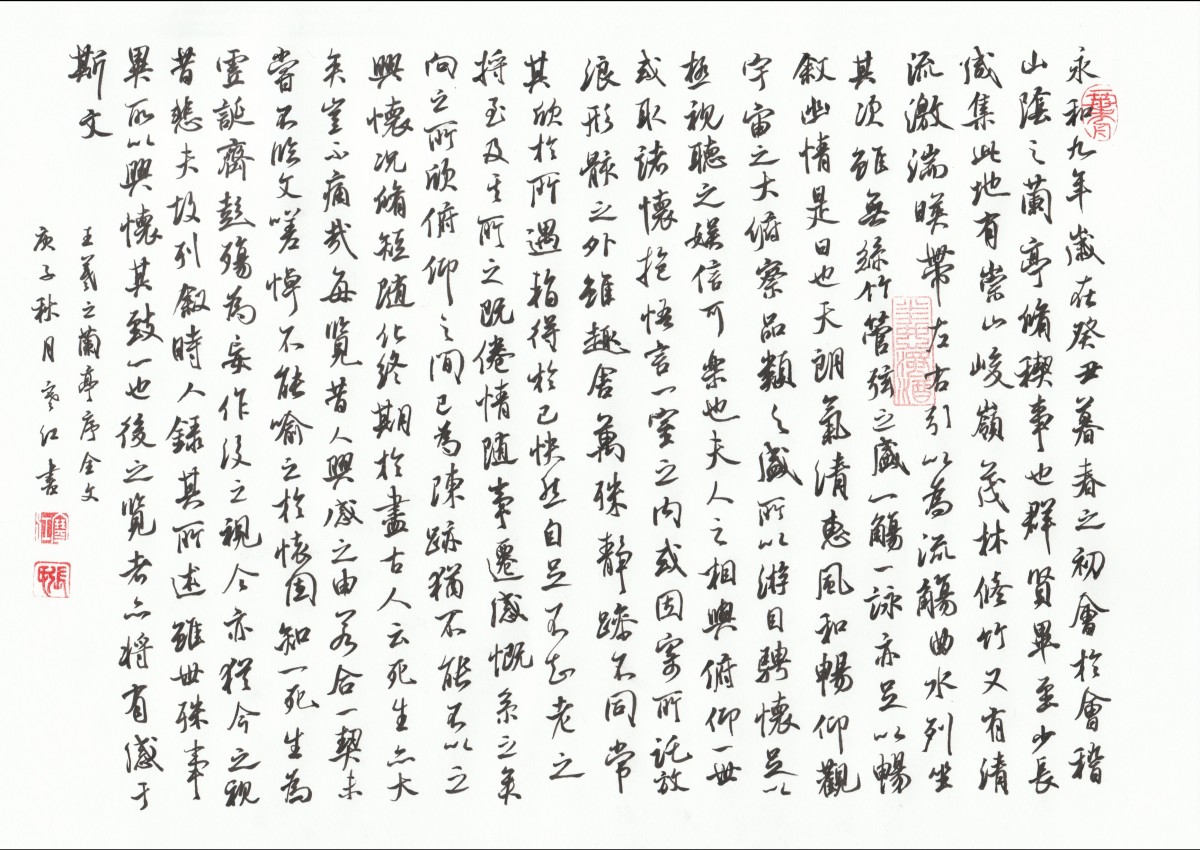 永和九年歲在癸丑暮春之初會於會稽
山陰之蘭亭脩稧事也群賢畢至少長
咸集此地有崇山峻嶺茂林修竹又有清
流激湍暎帶左右引以為流觴曲水列坐
其次雖無絲竹管弦之盛一觴一詠亦足以暢
敘幽情是日也天朗氣清惠風和暢仰觀
宇宙之大俯察品類之盛所以游目騁懷足以
極視聽之娛信可樂也夫人之相與俯仰一世
或取諸懷抱悟言一室之內或因寄所託放
浪形骸之外雖趣舍萬殊靜躁不同當
其欣於所遇暫得於己快然自足不知老之
將至及其所之既倦情隨事遷感慨係之矣
向之所欣俯仰之間已為陳跡猶不能不以之
興懷況脩短隨化終期於盡古人云死生亦大
矣豈不痛哉每覽昔人興感之由若合一契未
嘗不臨文嗟悼不能喻之於懷固知一死生為
虛誕齊彭殤為妄作後之視今亦猶今之視
昔悲夫故列敘時人錄其所述雖世殊事
異所以興懷其致一也後之覽者亦將有感于
斯文
王羲之蘭亭序全文
庚子秋月紅書